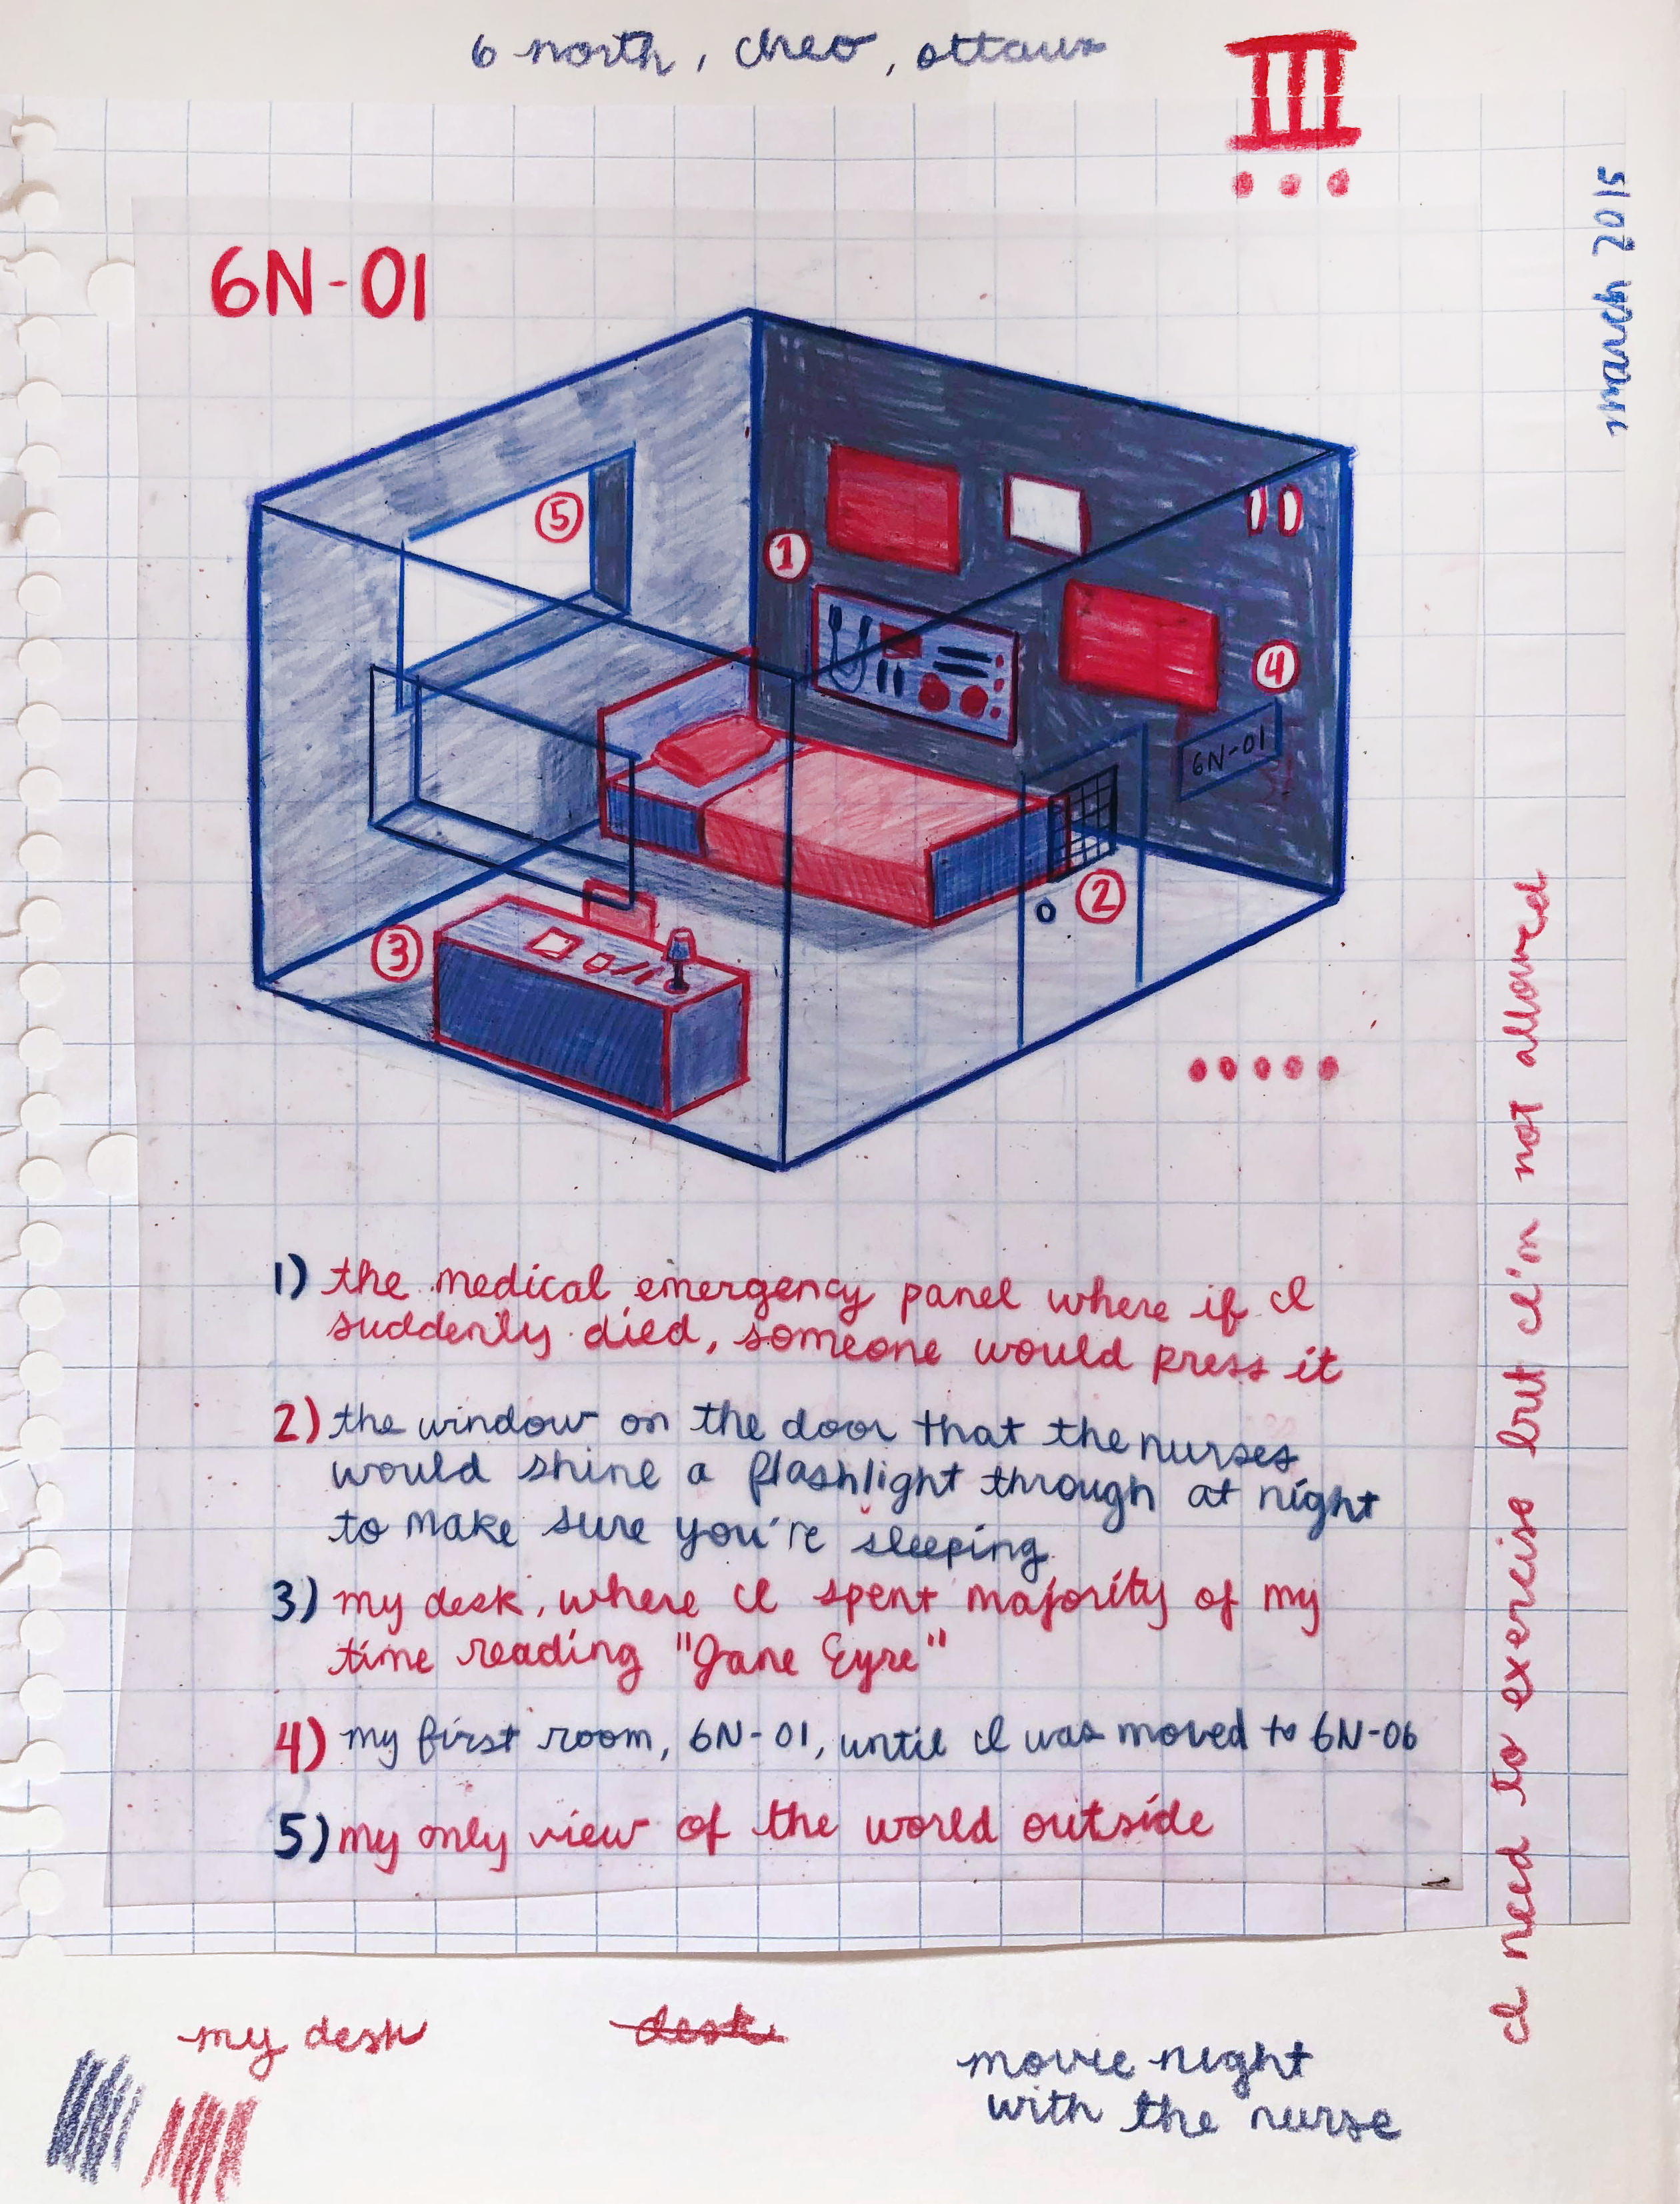 6 north, cheo, ottawa
III
march 2015
6N-01
5
1
4
6N-01
2
3
1) the medical emergency panel where if I
suddenly died, someone would press it
2) the window on the door that the nurses
would shine a flashlight through at night
to make sure you're sleeping
3) my desk, where I spent majority of my
time reading "Jane Eyre"
4) my first room, 6N-01, until I was moved to 6N-06
5) my only view of the world outside
I need to exercise but I'm not allowed
my desk
desk
movie night
with the nurse